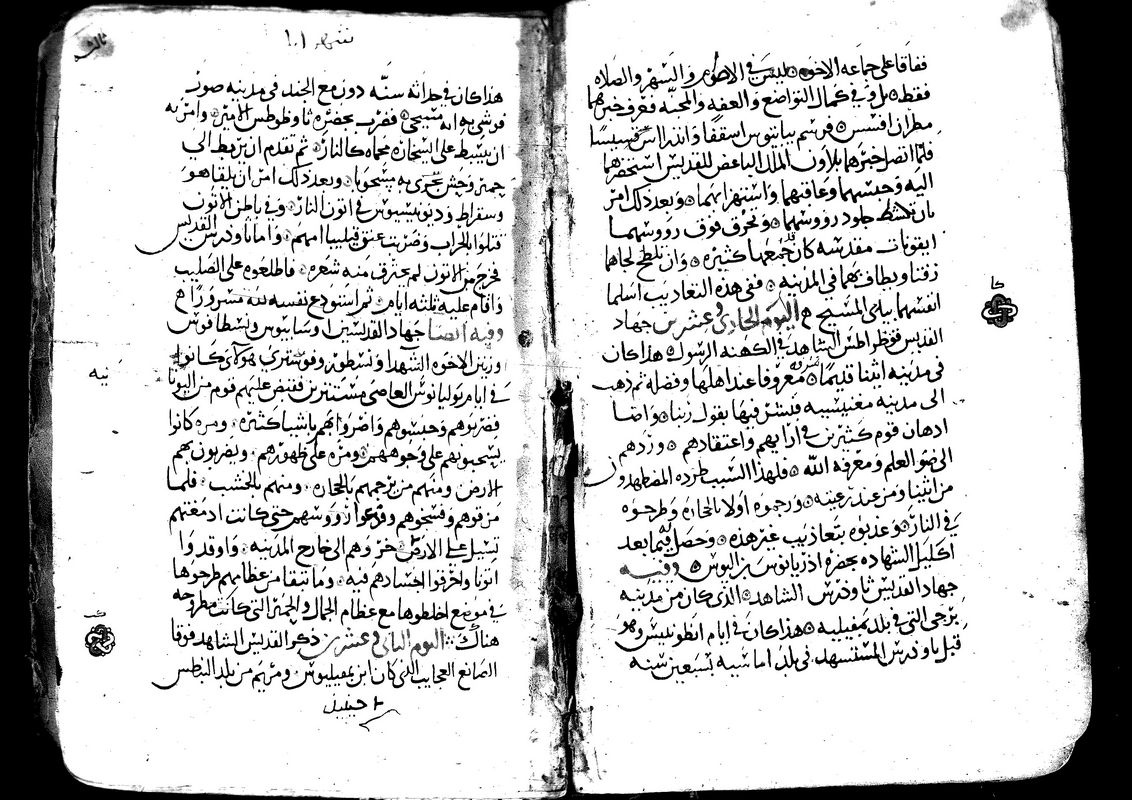 ففاقا على جماعه الاخوه ليس في الاصوام والسهر والصلاه
فقط بل وفي كمال التواضع والعفه والمحبه فعرف خبرهما
مطران افسس فرسم اسقفا واندراس قسيسا
فلما اتصل خبرهما بلاون الملك الباغض للقديس استحضرهما
اليه وحبسهما وعاقبهما واستهزا بهما وبعد ذلك امر
بان تكشط جلود رووسهما وتحرق فوق رووسهما
ايقونات مقدسه كان جمعها كثيره وان تلطخ لحاهما
زفتا ويطاف بهما في المدينه ففي هذه التعاذيب اسلما
انفسهما بيدي المسيح اليوم الحادي وعشرين جهاد
القديس قوظراطس الشاهد في الكهنه الرسول هذا كان
في مدينه اثينا قديما معروفا عند اهلها وفضله ثم ذهب
الى مدينه مغنيسيه فبشر فيها بقول ربنا واضا
اذهان قوم كثيرين في ارايهم واعتقادهم وردهم
الى ضو العلم ومعرفه الله فلهذا السبب طرده المضطهدون
من اثينا ومن عند رعيته ورجموه اولا بالحجاره وطرحوه
في النار وعذبوه بتعاذيب غير هذه وحصل فيما بعد
اكليل الشهاده بحضره اذريانوس وفيه
جهاد القديس ثاوذرس الشاهد الذي كان من مدينه
برجي التي في بلد بمفيليه هذا كان في ايام انطونينس وهو
قبل ثاوذرس المستشهد في بلد اماسيه بسبعين سنه
كا
ثالث
شهر
هذا كان في حداثه سنه دون مع الجند في مدينه
فوشي به انه مسيحي فقرب بحضره ثاوظوطس الامير وامر به
ان يبسط على السخانه محماه كالنار ثم تقدم ان يربط الى
وحش تجري به مسحوبا وبعد ذلك امر ان يلقا هو
وسقراط وديونيسيوس في اتون النار وفي باطن الاتون
قتلوا بالحراب وضربت عنق فيليبيا امهم واما ثاوذرس القديس
فخرج من الاتون لم يحترق منه شعره فاطلعوه على الصليب
واقام عليه ثلثه ايام ثم استودع نفسه لله مسرورا
وفيه ايضا جهاد القديسين اوسابيوس ونسطافوس
وزينن الاخوه الشهدا ونسطور وفوسيري هولاي كانوا
في ايام يوليانوس العاصي مستترين فقبض عليهم قوم من اليونا
فضربوهم وحبسوهم واضروا بهم باشيا كثيره ومره كانوا
يسحبونهم على وجوههم ومره على ظهورهم ويضربون بهم
الارض ومنهم من يرجمهم بالحجاره ومنهم بالخشب فلما
مزقوهم وفسخوهم وقدعوا رووسهم حتى كانت ادمغتهم
تسيل على الارض جروهم الى خارج المدينه واوقدوا
اتونا واحرقوا اجسادهم فيه وما تبقا من عظامهم طرحوها
في موضع اخلطوها مع عظام الجمال والحمير التي كانت مطروحه
هناك اليوم الثاني وعشرين ذكر القديس الشاهد فوقا
الصانع العجايب الذي كان ابن بمفيليوس ومريم من بلد البنطس
كب